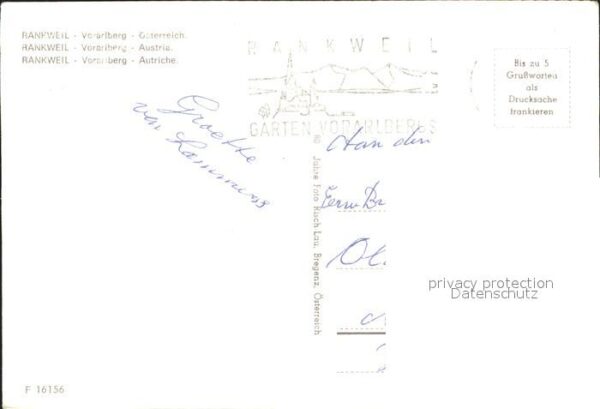 RANKWEIL - Vorarlberg - Österreich.
RANKWEIL - Vorarlberg - Austria.
RANKWEIL - Vorarlberg - Autriche.
RANKWEIL
GARTEN VORARLBERGS
Bis zu 5
Grußworten
als
Drucksache
frankieren
van
Aan den
80 Jahre Foto Risch-Lau, Bregenz, Österreich
privacy protection
Datenschutz
F 16156